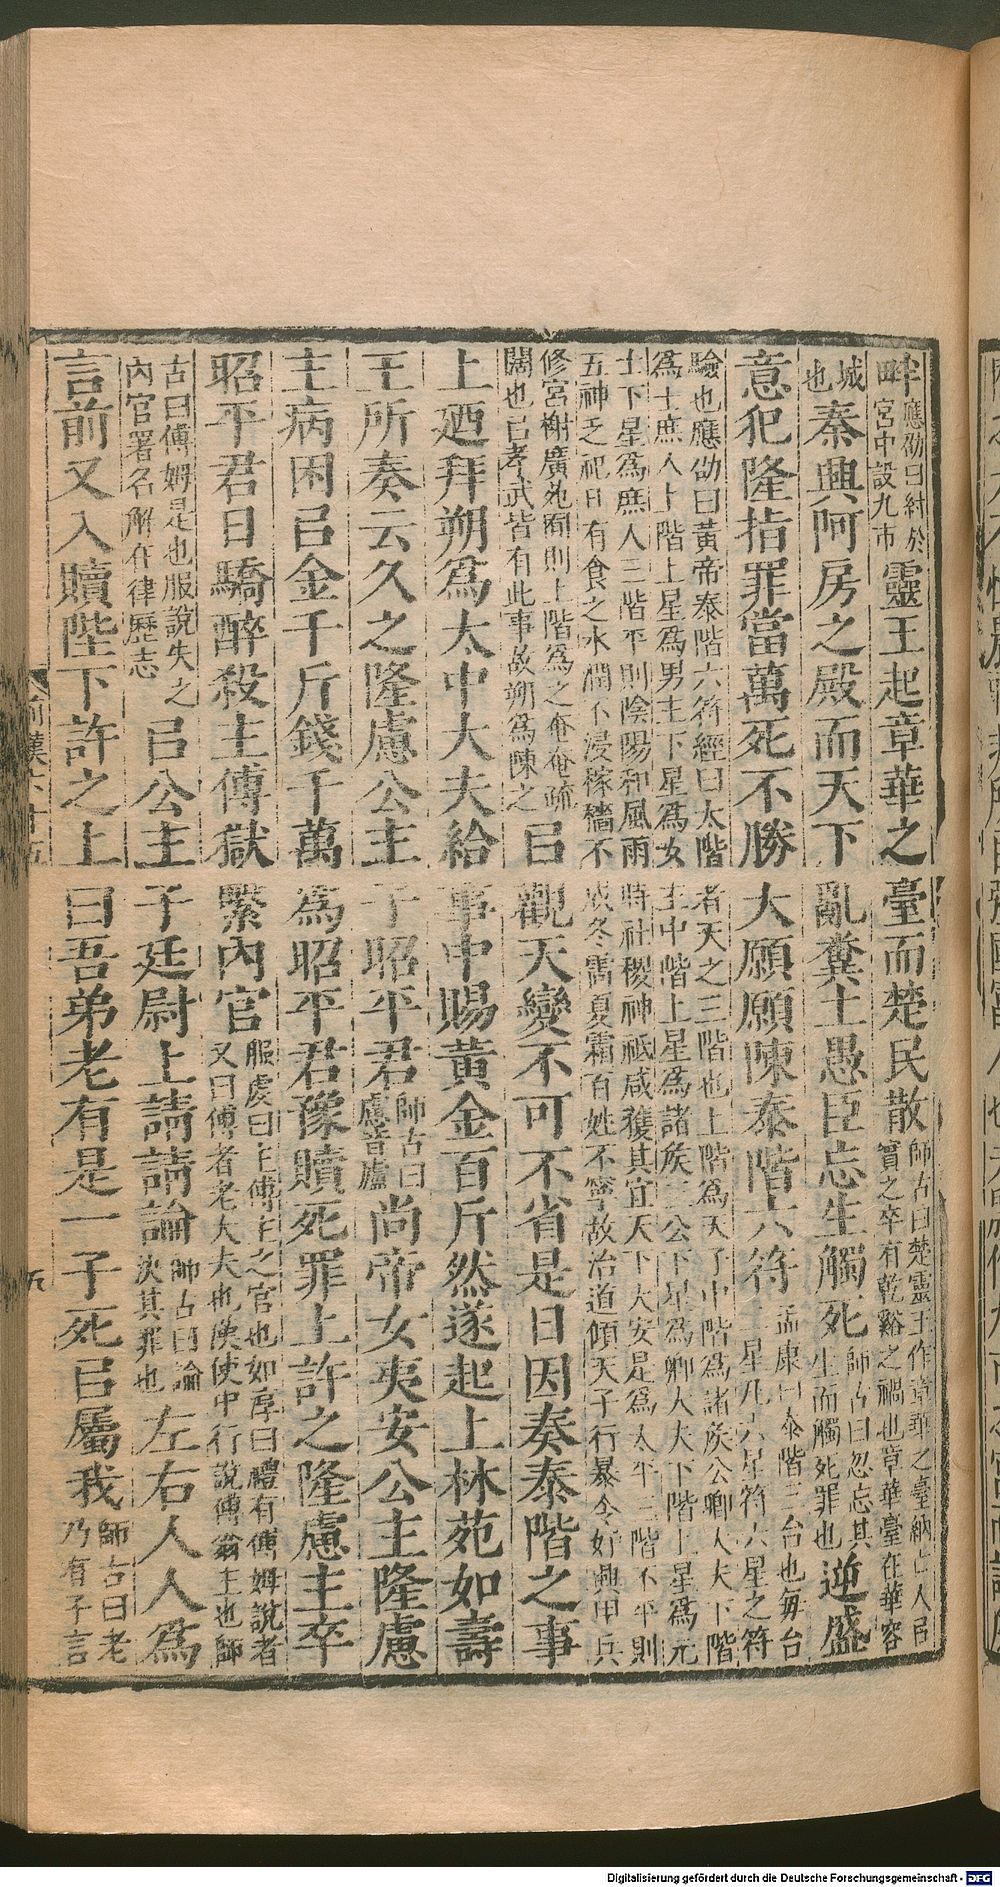 畔應劭曰紂於宮中設九市靈王起章華之臺而楚民散師古曰楚靈王作章華之臺納亡人㠯實之卒有乾谿之禍也章華臺在華容
城也秦興阿房之殿而天下亂糞土愚臣忘生觸死師古曰忽忘其生而觸死罪也逆盛
意犯隆指罪當萬死不勝大願願陳泰階六符孟康曰泰階三台也每台二星凡六星符六星之符
驗也應劭曰黃帝泰階六符經曰太階者天之三階也上階爲天子中階爲諸族公卿大夫下階
爲士庶人上階上星爲男主下星爲女主中階上星爲諸族三公下星爲卿大夫下階上星爲元
士下星爲庶人三階平則陰陽和風雨時社稷神祇咸獲其宜天下大安是爲太平三階不平則
五神乏祀日有食之水潤不浸稼穡不成冬雷夏霜百姓不寧故治道傾天子行暴令好興甲兵
修宮榭廣苑囿則上階爲之奄奄疏闊也㠯孝武皆有此事故朔爲陳之㠯觀天變不可不省是日因奏泰階之事
上廼拜朔爲太中大夫給事中賜黃金百斤然遂起上林苑如壽
王所奏云久之隆慮公主子昭平君師古曰慮音廬尚帝女夷安公主隆慮
主病困㠯金千斤錢千萬爲昭平君豫贖死罪上許之隆慮主卒
昭平君日驕醉殺主傅獄繫內官服虔曰主傅主之官也如淳曰禮有傅姆說者又曰傅者老大夫也漢使中行說傅翁主也師
古曰傅姆是也服說失之內官署名解在律歷志㠯公主子廷尉上請請論師古曰論決其罪也左右人人爲
言前又入贖陛下許之上曰吾弟老有是一子死㠯屬我師古曰老乃有子言
前漢六十五
五
Digitalisierung gefördert durch die Deutsche Forschungsgemeinschaft - DFG